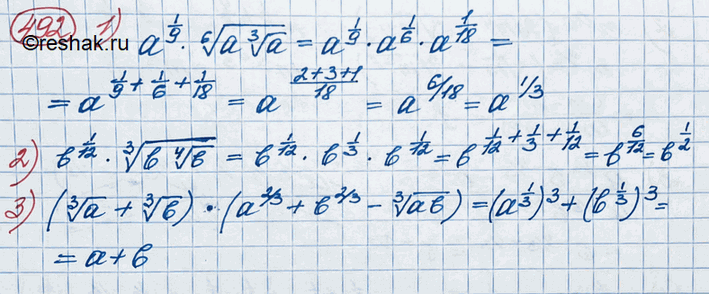 492 1) a^{1/9} · ⁶√(a ∛a) = a^{1/9} · a^{1/6} · a^{1/18} =
©reshak.ru
= a^{1/9 + 1/6 + 1/18} = a^{(2+3+1)/18} = a^{6/18} = a^{1/3}
2) b^{1/12} · ∛(b ⁴√b) = b^{1/12} · b^{1/3} · b^{1/12} = b^{1/12 + 1/3 + 1/12} = b^{6/12} = b^{1/2}
3) (∛a + ∛b) · (a^{2/3} + b^{2/3} − ∛(ab)) = (a^{1/3})³ + (b^{1/3})³ =
= a + b